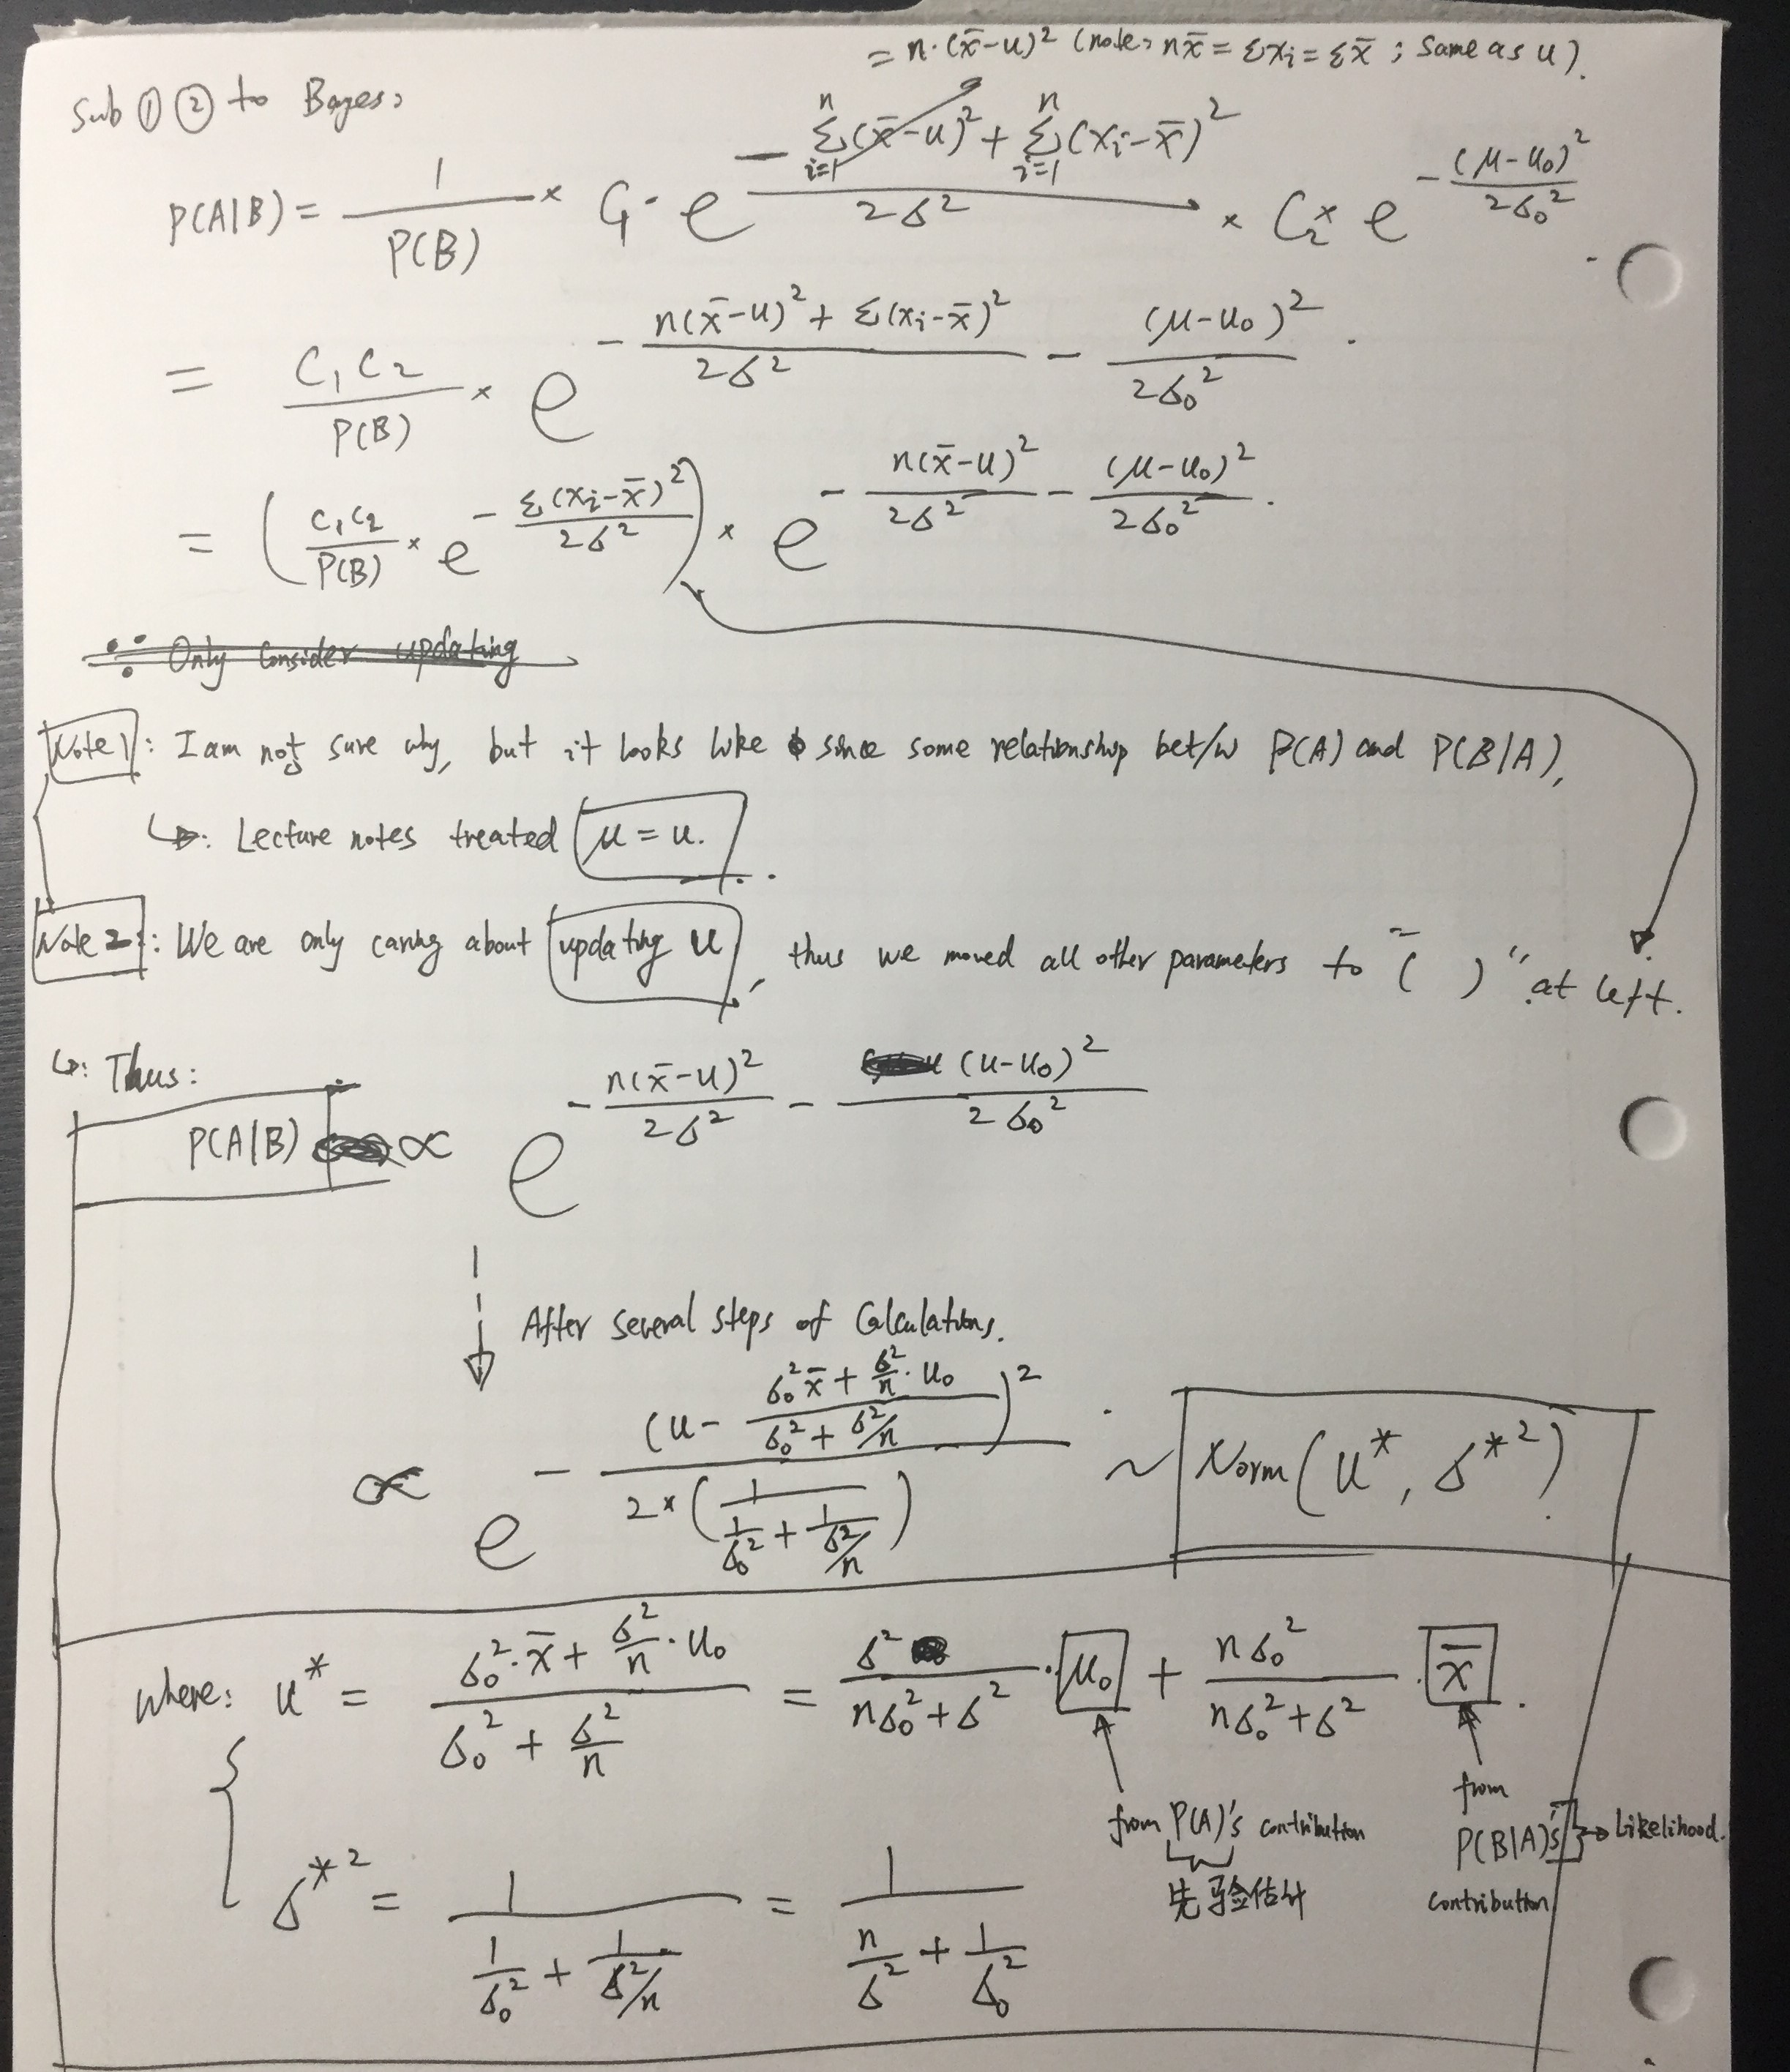 = n·(x̄-u)² (note: nx̄ = Σxᵢ = Σx̄ ; same as u).
Sub ① ② to Bayes:
P(A|B) = 1/P(B) × C₁· e^(- (Σ_{i=1}^{n}(x̄-u)² + Σ_{i=1}^{n}(xᵢ-x̄)²)/2σ²) × C₂ × e^(- (μ-u₀)²/2σ₀²)
= C₁C₂/P(B) × e^(- (n(x̄-u)² + Σ(xᵢ-x̄)²)/2σ² - (μ-u₀)²/2σ₀²).
= (C₁C₂/P(B) × e^(- Σ(xᵢ-x̄)²/2σ²)) × e^(- n(x̄-u)²/2σ² - (μ-u₀)²/2σ₀²).
∵ Only consider updating
Note 1: I am not sure why, but it looks like since some relationship bet/w P(A) and P(B|A),
↳: Lecture notes treated μ = u.
Note 2: We are only caring about updating u, thus we moved all other parameters to "( )" at left.
↳: Thus:
P(A|B) ∝ e^(- n(x̄-u)²/2σ² - (u-u₀)²/2σ₀²)
After several steps of Calculations.
∝ e^(- (u - (σ₀²x̄ + σ²/n·u₀)/(σ₀² + σ²/n))² / 2×(1/(1/σ₀² + 1/(σ²/n)))) ~ Norm(u*, σ*²)
where: u* = (σ₀²·x̄ + σ²/n·u₀)/(σ₀² + σ²/n) = σ²/(nσ₀²+σ²)·μ₀ + nσ₀²/(nσ₀²+σ²)·x̄.
from P(A)'s contribution
先验估计
from
P(B|A)'s → Likelihood.
contribution
σ*² = 1/(1/σ₀² + 1/(σ²/n)) = 1/(n/σ² + 1/σ₀²)